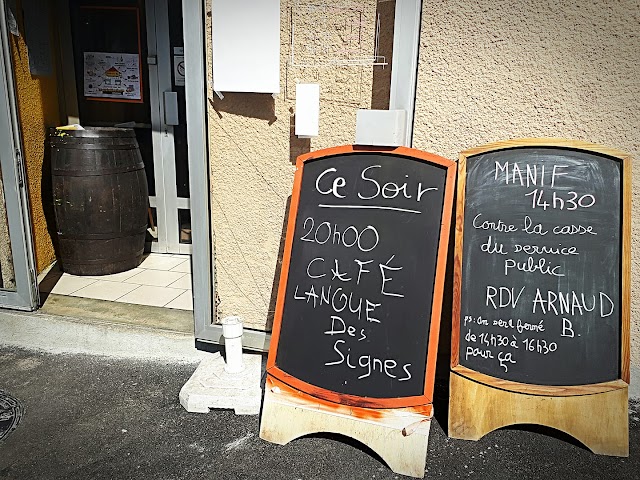 Ce Soir
20h00
CAFÉ
LANGUE
Des
Signes
MANIF
14h30
Contre la casse
du service
public
RDV ARNAUD
B.
ps: On sera fermé
de 14h30 à 16h30
pour ça